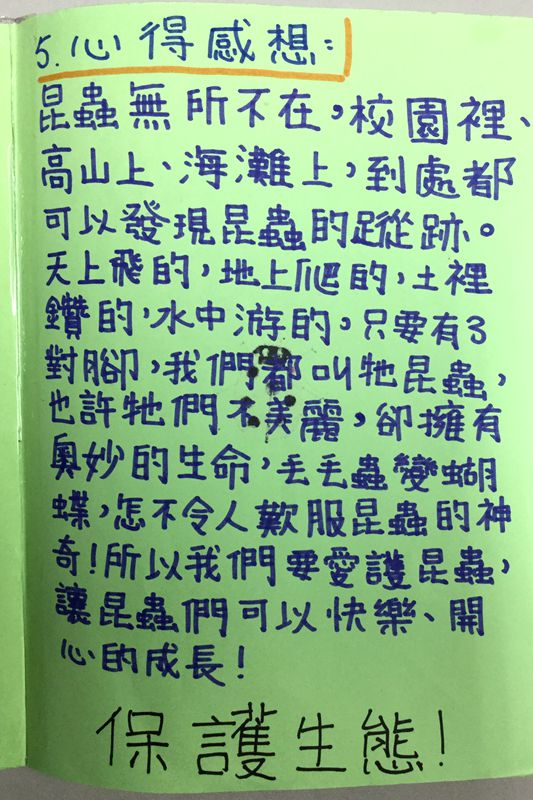 5.心得感想:
昆蟲無所不在,校園裡、
高山上、海灘上,到處都
可以發現昆蟲的蹤跡。
天上飛的,地上爬的,土裡
鑽的,水中游的,只要有3
對腳,我們都叫牠昆蟲,
也許牠們不美麗,卻擁有
奧妙的生命,毛毛蟲變蝴
蝶,怎不令人歎服昆蟲的神
奇!所以我們要愛護昆蟲,
讓昆蟲們可以快樂、開
心的成長!
保護生態!